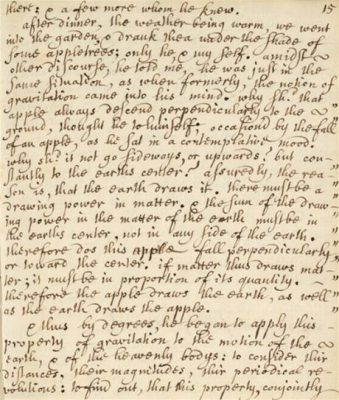 there; & a few more whom he knew. 15
after dinner, the weather being warm, we went
into the garden, & drank thea under the shade of
some appletrees; only he, & my self. amidst
other discourse, he told me, he was just in the
same situation, as when formerly, the notion of
gravitation came into his mind. why sh.d that
apple always descend perpendicularly to the
ground, thought he to himself: occasion'd by the fall
of an apple, as he sat in a contemplative mood.
why sh.d it not go sideways, or upwards? but con-
stantly to the earths center? assuredly, the rea-
son is, that the earth draws it. there must be a
drawing power in matter. & the sum of the draw-
ing power in the matter of the earth must be in
the earths center, not in any side of the earth.
therefore dos this apple fall perpendicularly
or toward the center. if matter thus draws mat-
ter; it must be in proportion of its quantity.
therefore the apple draws the earth, as well
as the earth draws the apple.
& thus by degrees, he began to apply this
property of gravitation to the motion of the
earth, & of the heavenly bodys: to consider thir
distances, their magnitudes, thir periodical re-
volutions: to find out, that this property, conjointly